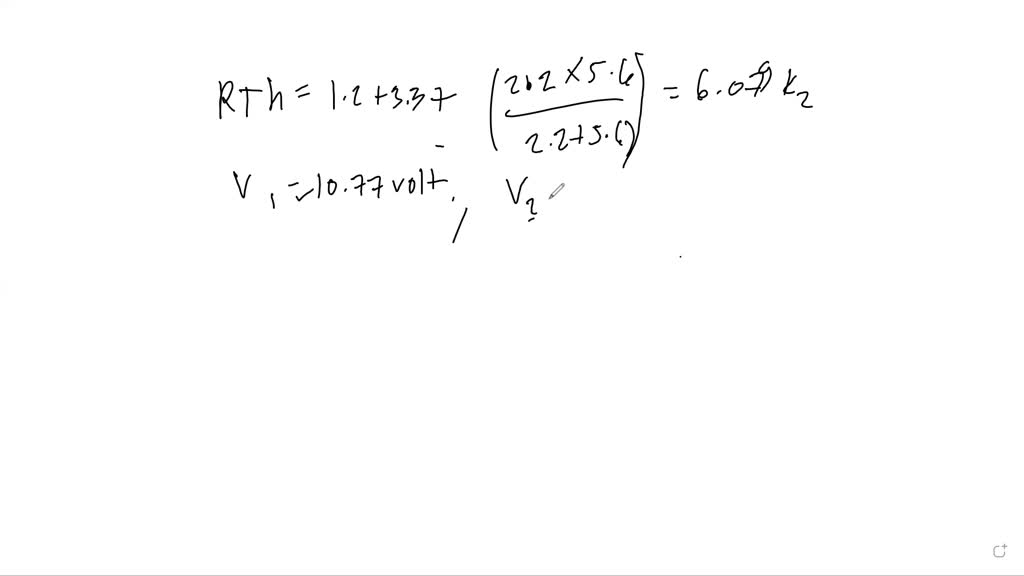 RTh = 1.2+3.3+ (2.2×5.6 / 2.2+5.6) = 6.079 k2
V1 = 10.77 volt, V2